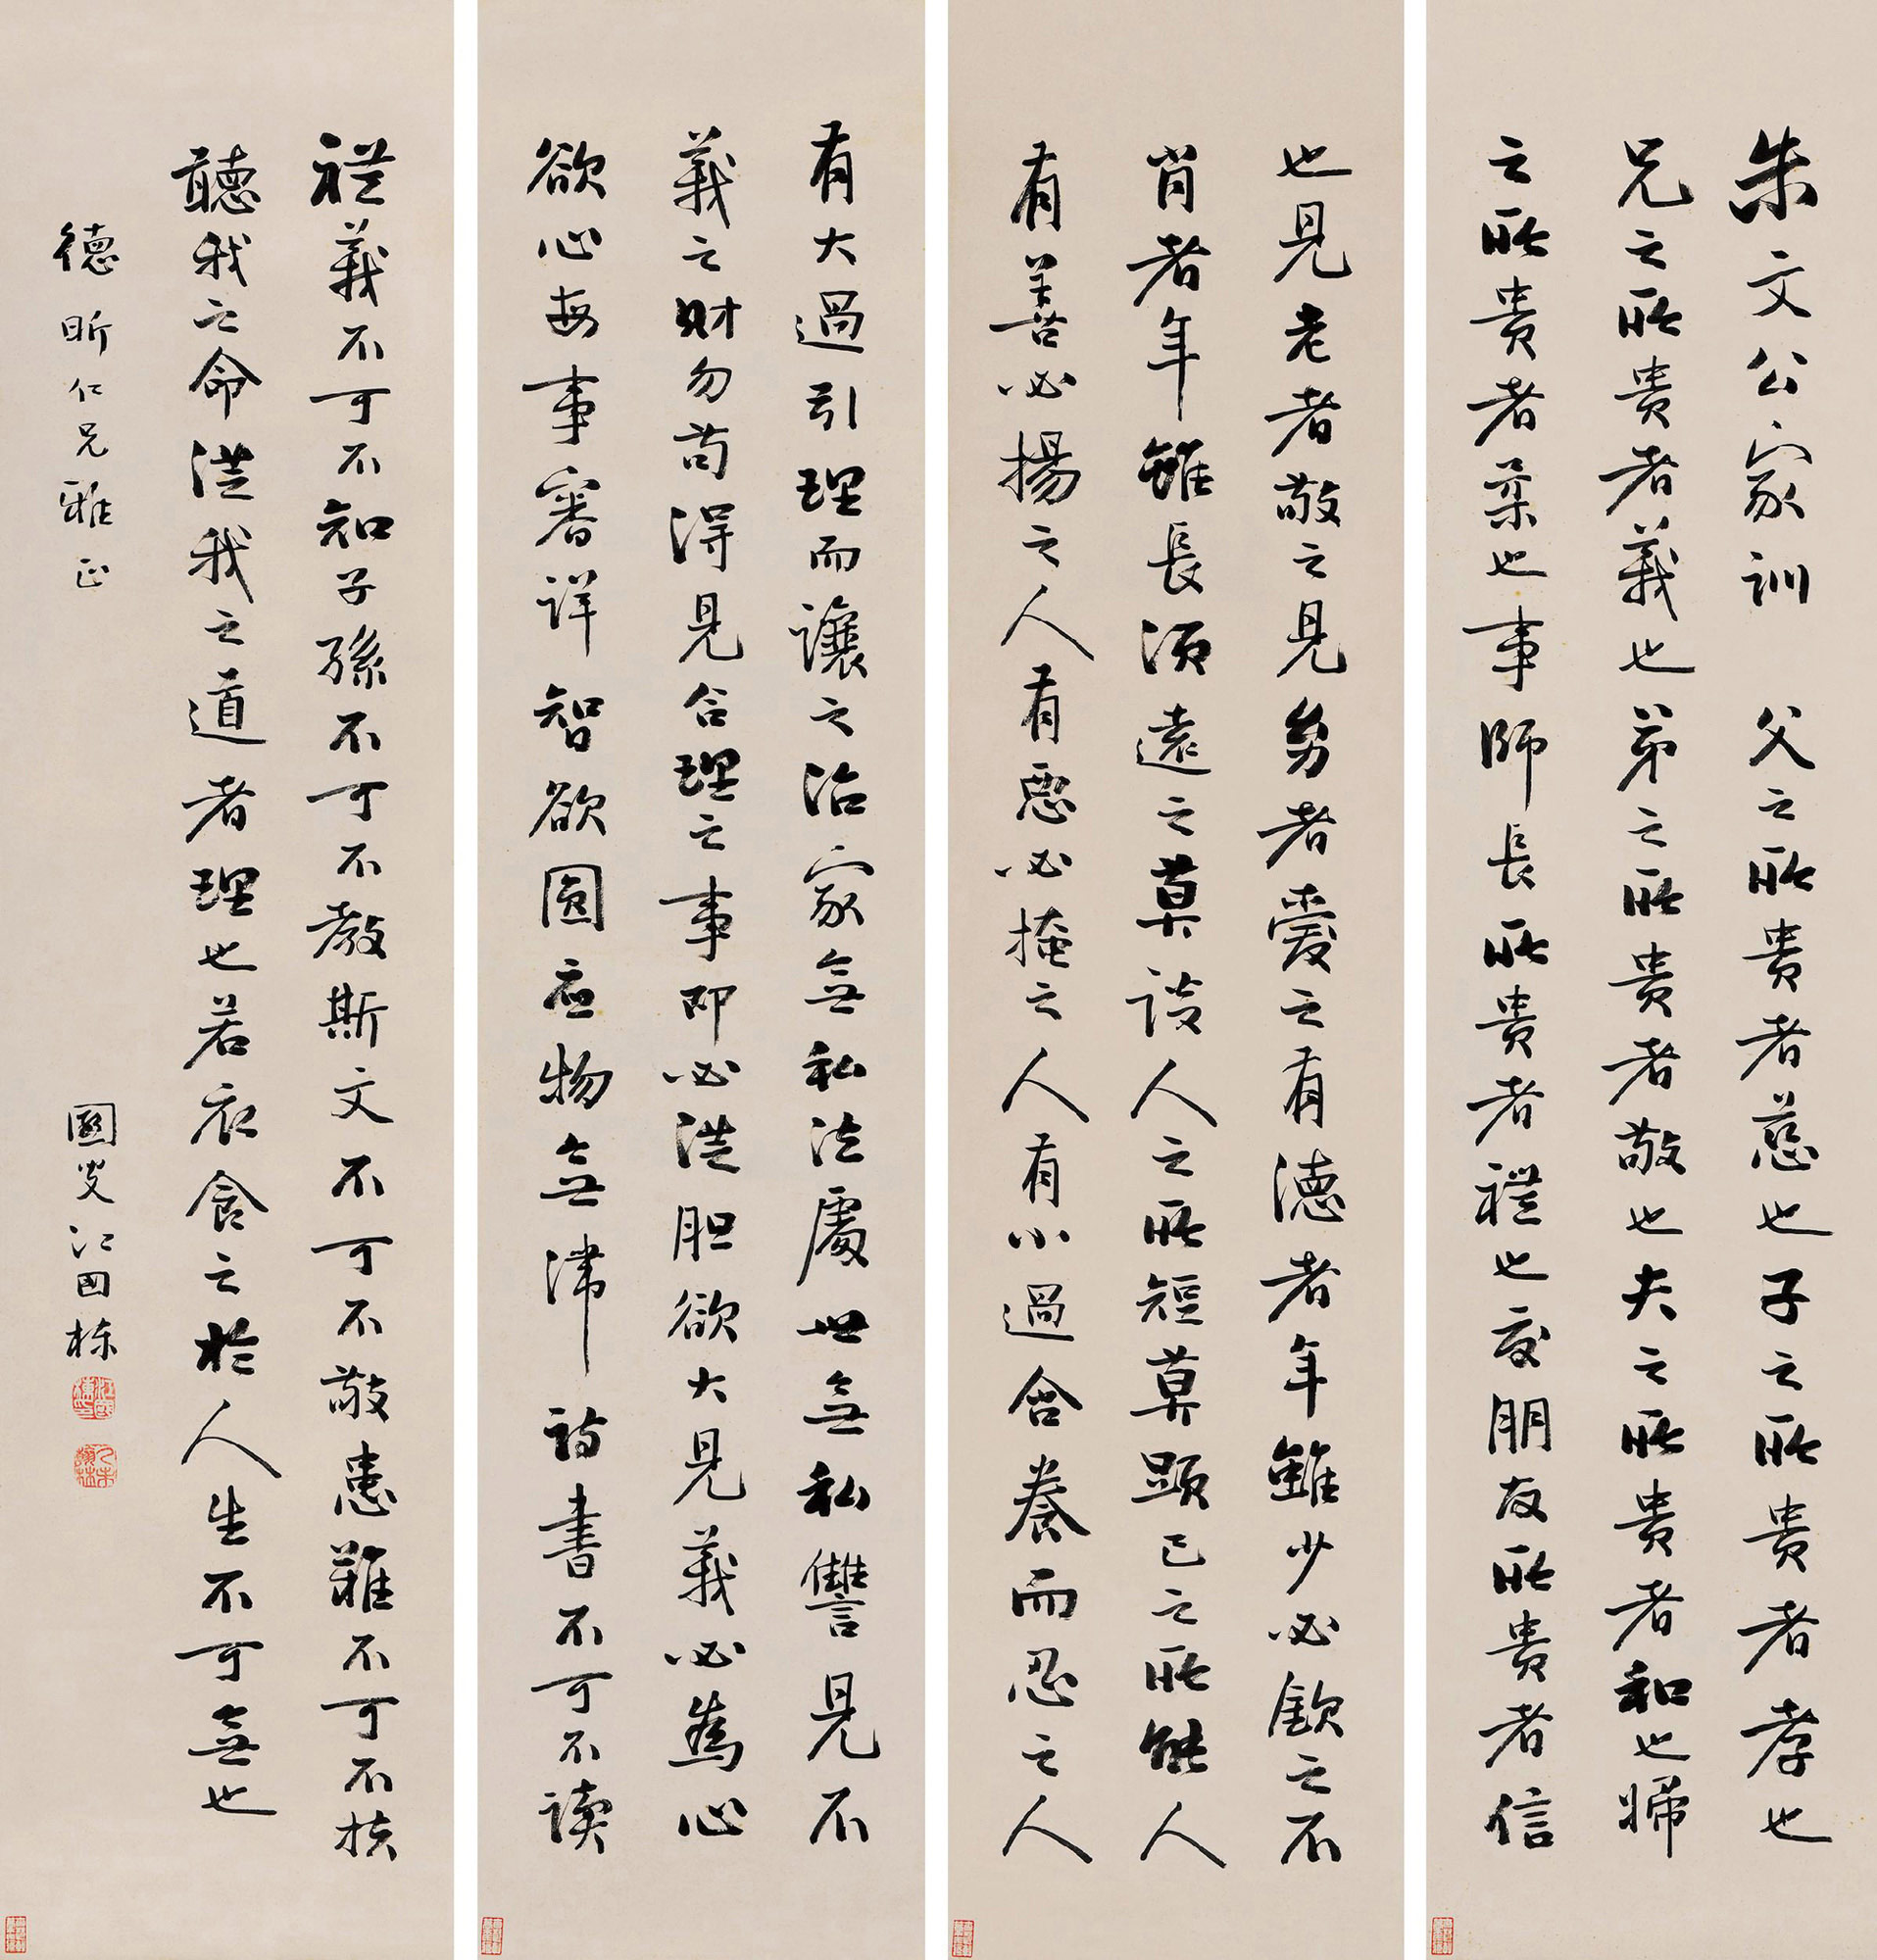 朱文公家訓 父之所貴者慈也子之所貴者孝也
兄之所貴者義也弟之所貴者敬也夫之所貴者和也婦
之所貴者柔也事師長所貴者禮也交朋友所貴者信
也見老者敬之見幼者愛之有德者年雖少必欽之不
肖者年雖長須遠之莫談人之所短莫顯己之所能人
有善必揚之人有惡必掩之人有小過含養而忍之人
有大過引理而讓之治家無私法處世無私讐見不
義之財勿苟得見合理之事即必從胆欲大見義必為心
欲心每事審詳智欲圓應物無滯詩書不可不讀
禮義不可不知子孫不可不教斯文不可不敬患難不可不扶
聽我之命從我之道者理也若衣食之於人生不可無也
德昕仁兄雅正
江國棟